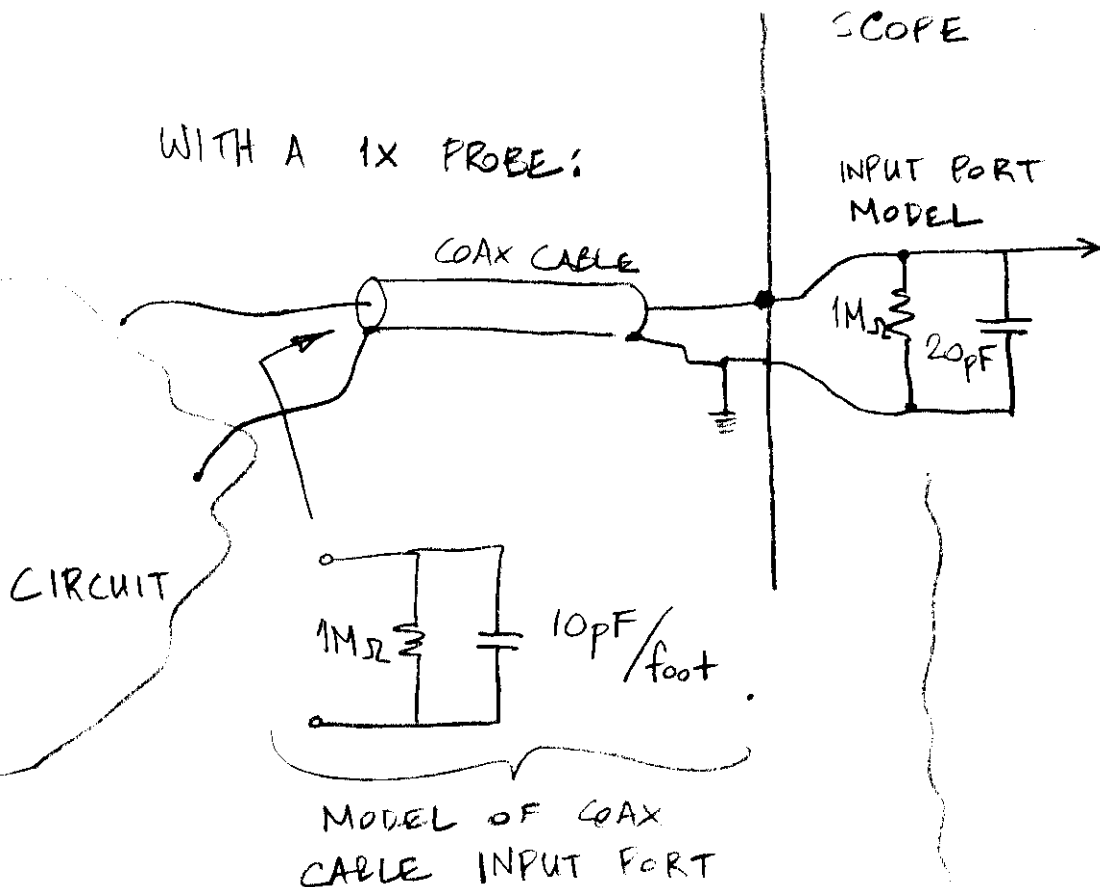 SCOPE
WITH A 1X PROBE:
INPUT PORT
MODEL
COAX CABLE
1MΩ
20pF
CIRCUIT
1MΩ
10pF/foot
MODEL OF COAX
CABLE INPUT PORT